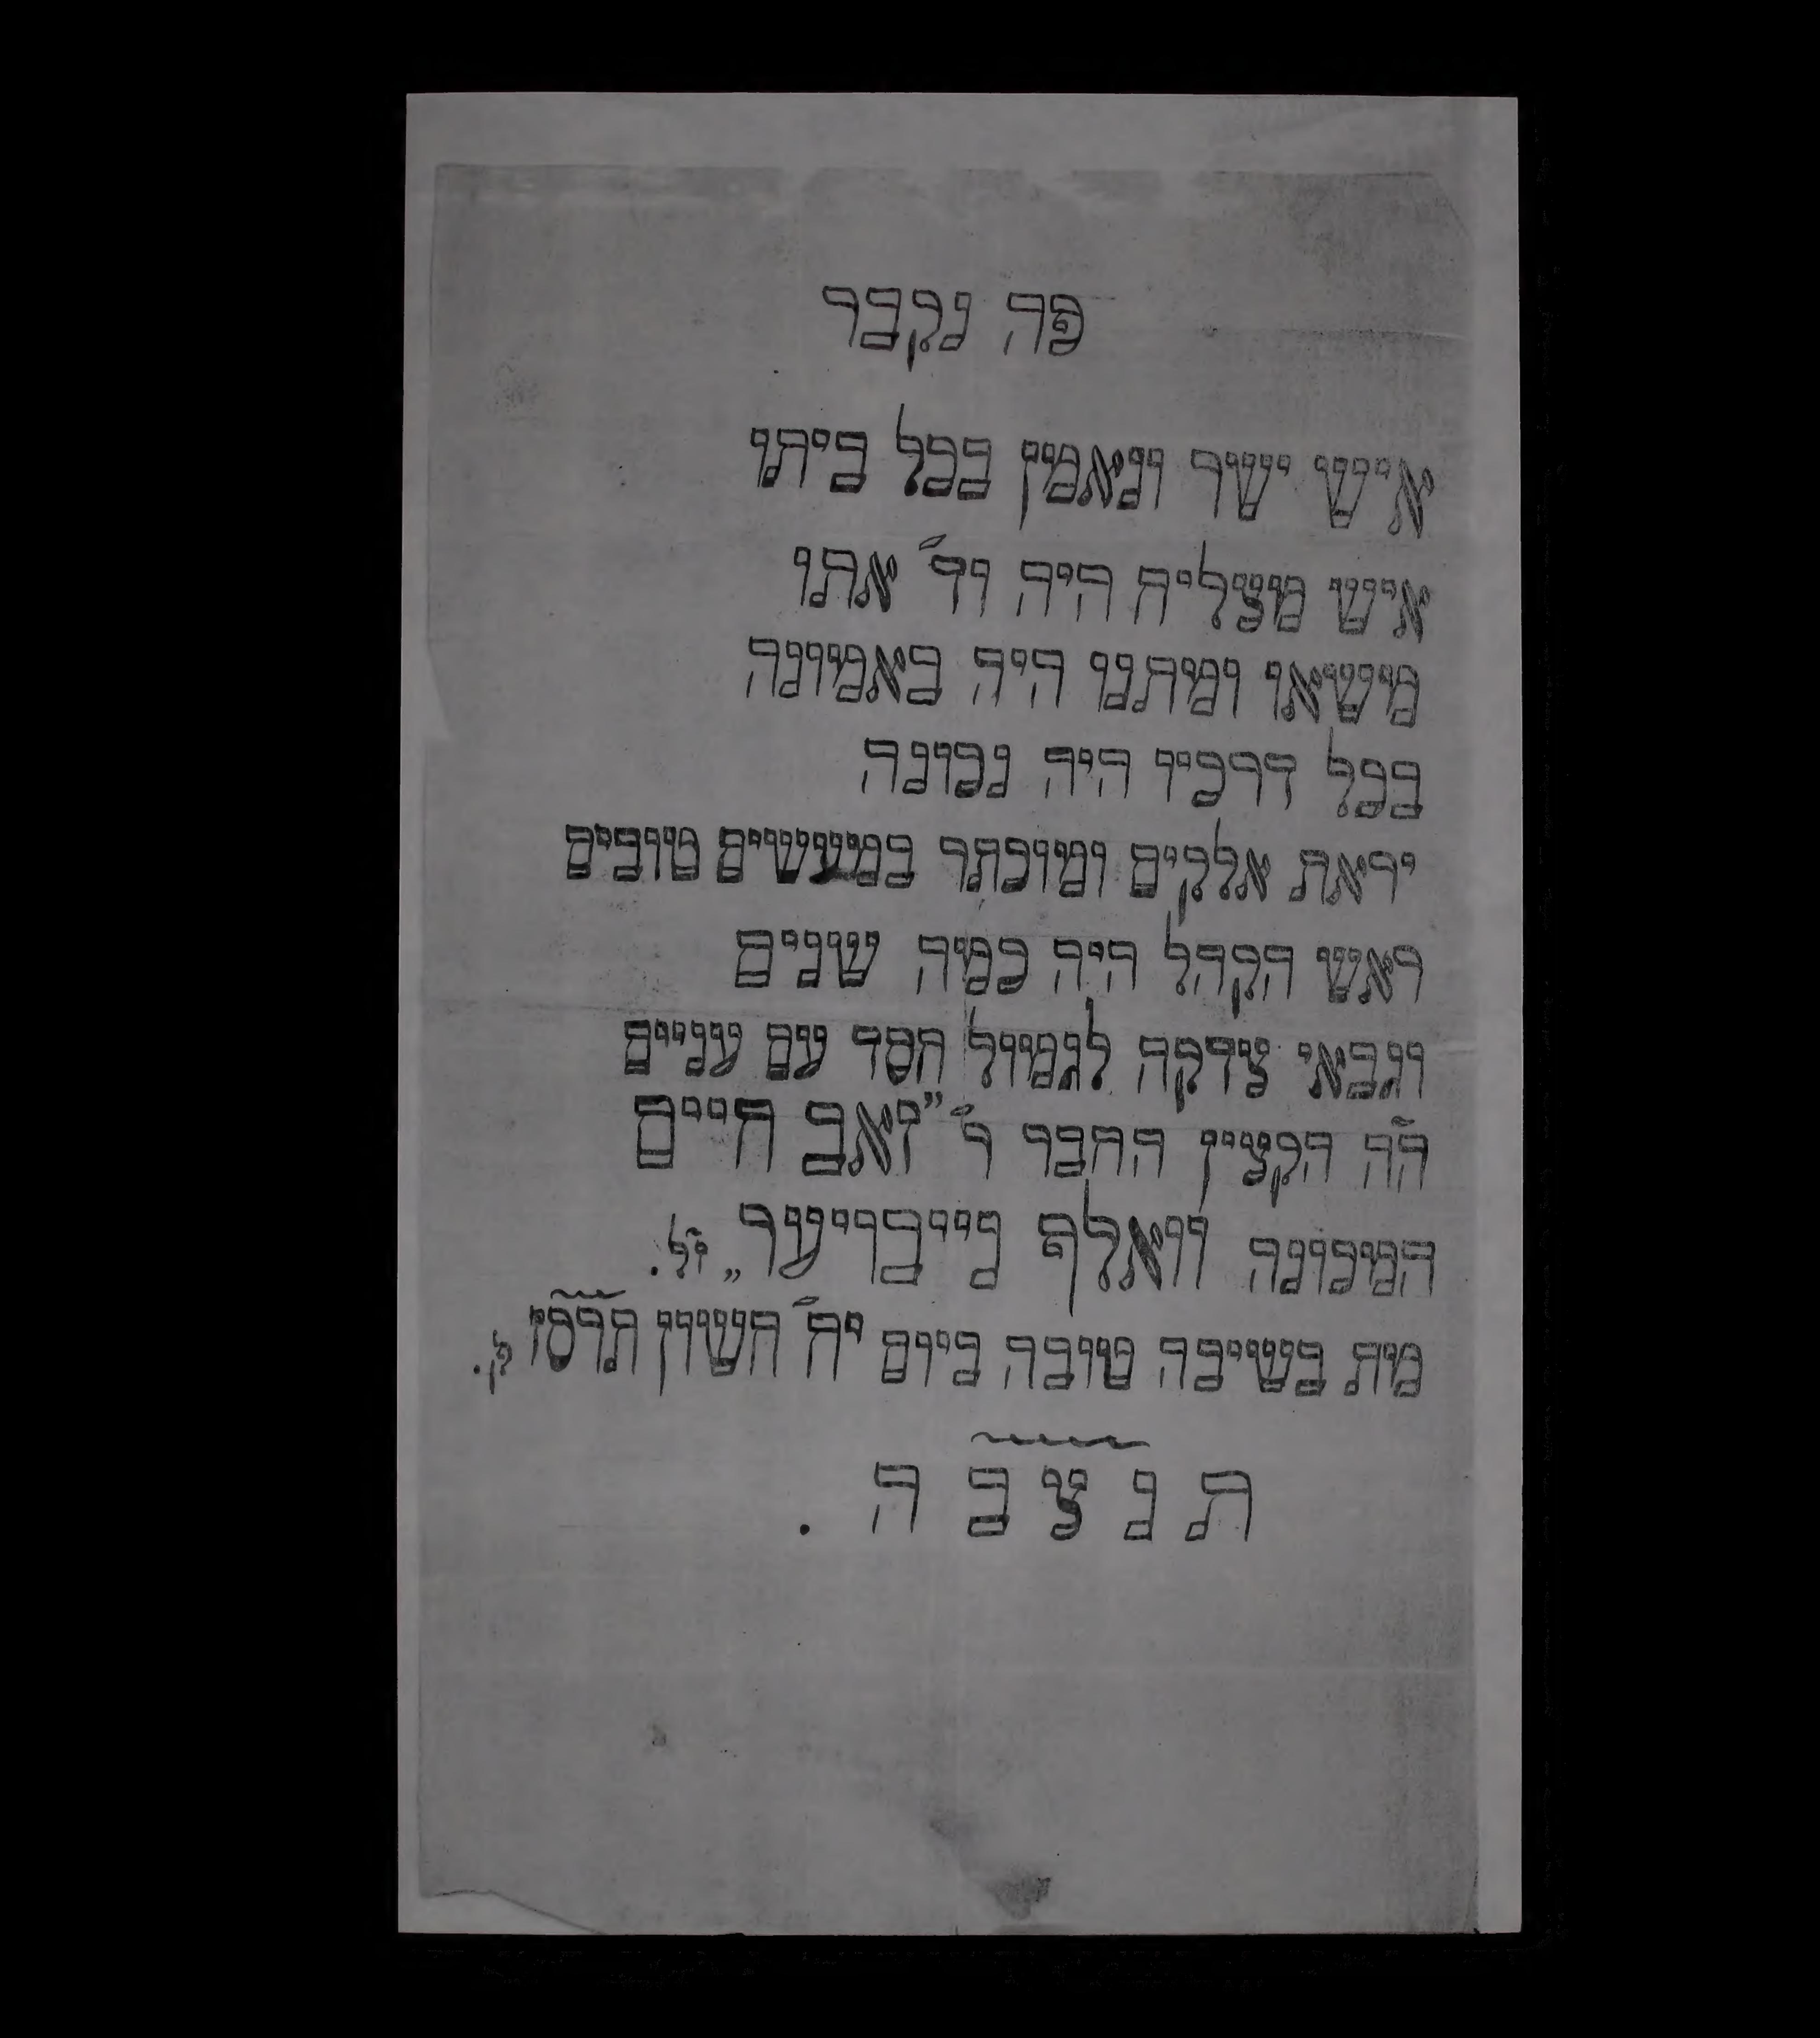 פה נקבר
איש ישר ונאמין בכל ביתו
איש מצליח היה וד׳ אתו
מישאו ומתנו היה באמונה
בכל דרכיו היה נכונה
יראת אלקים ומוכתר במעשים טובים
ראש הקהל היה כמה שנים
וגבאי צדקה לגמול חסד עם עניים
ה״ה הקצין החבר ר׳ ״זאב חיים
המכונה וואלף נייבריער״ ז״ל.
מת בשיבה טובה ביום י״ח חשון תרס״ו ל.
ת נ צ ב ה .